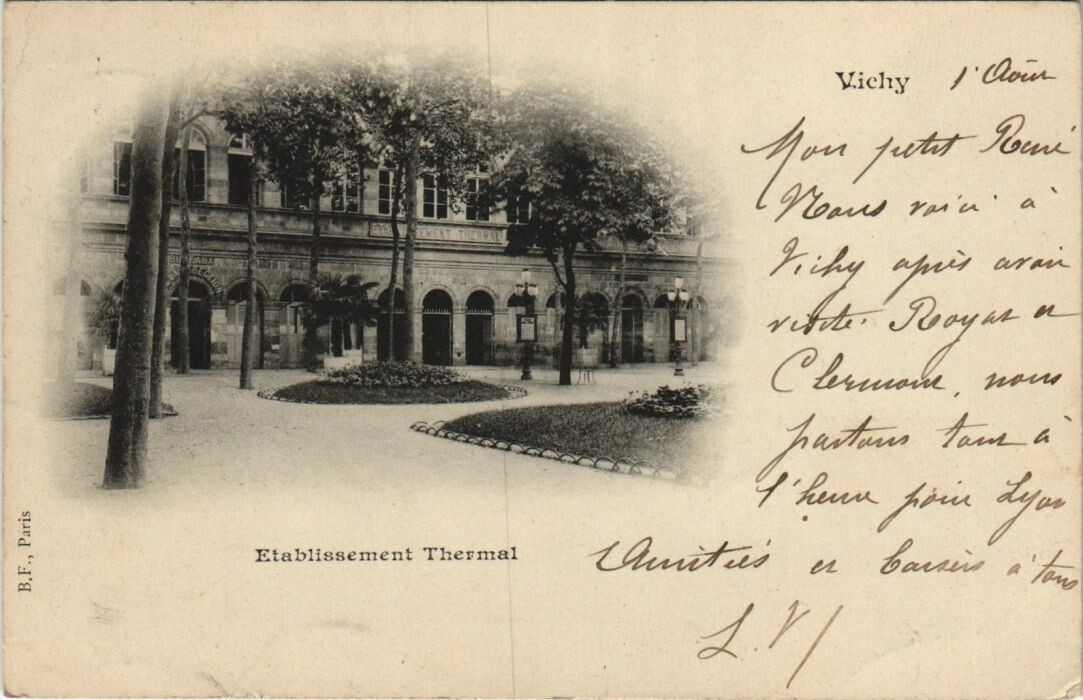 Vichy 1 Août
Mon petit René
Nous voici à
Vichy après avoir
visité Royat et
Clermont, nous
partons tout à
l'heure pour Lyon
Amitiés et baisers à tous
L. V
ETABLISSEMENT THERMAL
BUREAUX
Etablissement Thermal
B.F., Paris